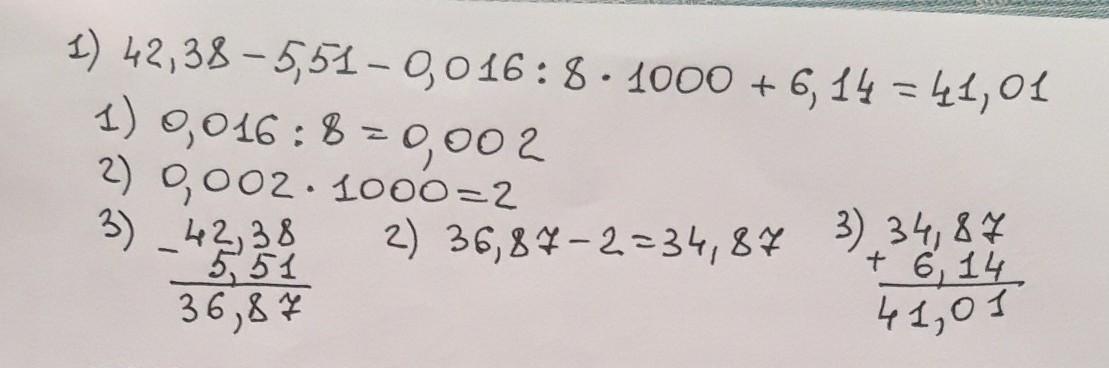 1) 42,38 - 5,51 - 0,016 : 8 · 1000 + 6,14 = 41,01
1) 0,016 : 8 = 0,002
2) 0,002 · 1000 = 2
3) - 42,38
5,51
36,87
2) 36,87 - 2 = 34,87
3) 34,87
+ 6,14
41,01